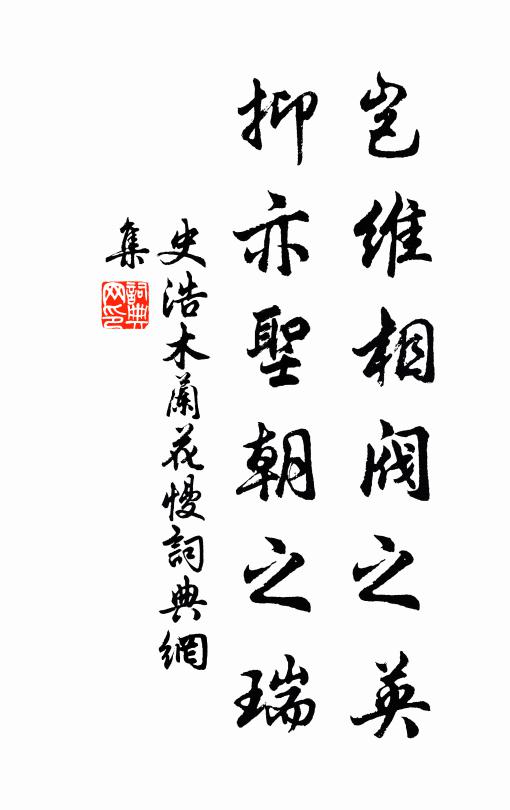 岂維相閥之英
抑亦聖朝之瑞
史浩木蘭花慢詞典網
集
詞典
网印